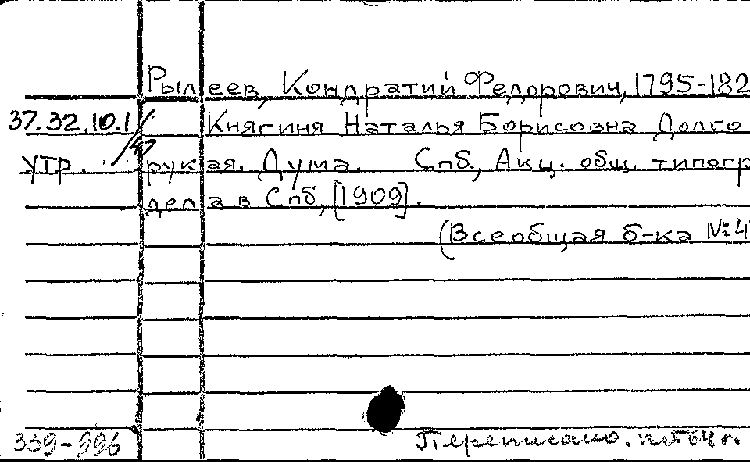 Рылеев, Кондратий Федорович, 1795-182
37.32.10.1/47 Княгиня Наталья Борисовна Долго
утр. рукая. Дума. Спб., Акц. общ. типогр
дела в Спб, [1909].
(Всеобщая б-ка №4
339-996 Переписано.